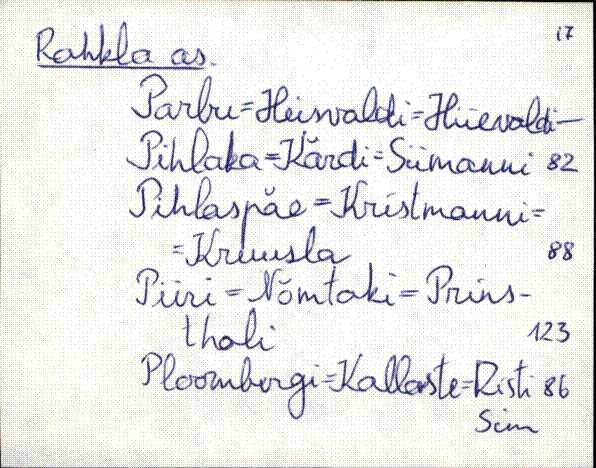 17
Rahkla as.
Parbu=Heisvaldi=Hüevaldi—
Pihlaka=Kärdi=Siimanni 82
Pihlaspäe=Kristmanni=
=Kruusla 88
Piiri=Nõmtaki=Prins-
thali 123
Ploombergi=Kallaste=Risti 86
Sim